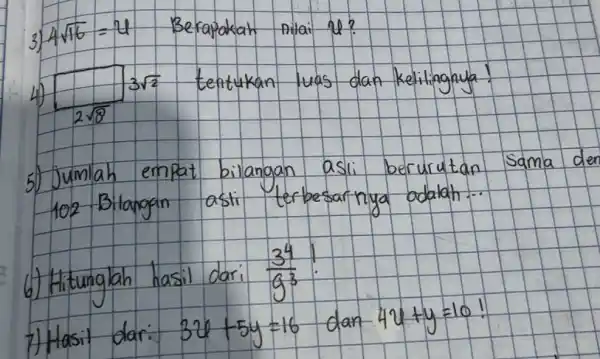 3) 4√16 = u Berapakah nilai u?
4) 3√2 tentukan luas dan kelilingnya!
2√8
5) Jumlah empat bilangan asli berurutan sama den
102 Bilangan asli terbesarnya adalah...
6) Hitunglah hasil dari 3⁴/9³!
7) Hasil dari 3u + 5y = 16 dan 4u + y = 10!